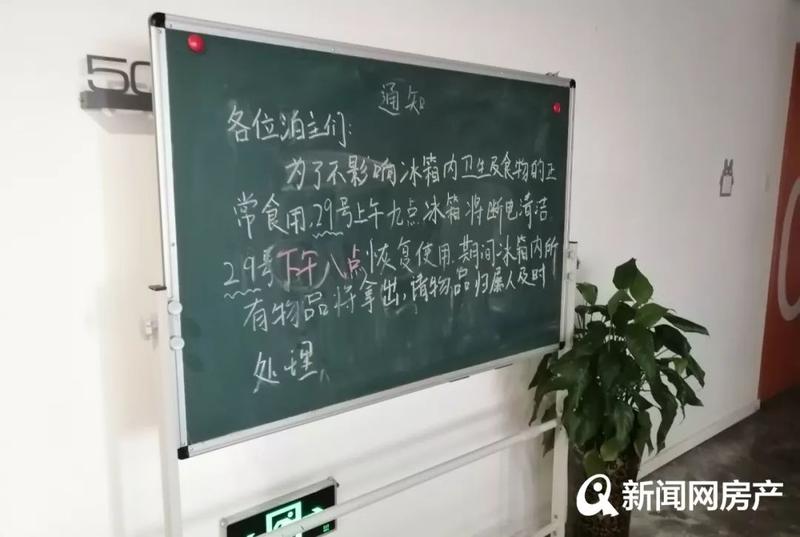 50
通知
各位泊主们:
为了不影响冰箱内卫生及食物的正
常食用,29号上午九点冰箱将断电清洁
29号下午八点恢复使用.期间冰箱内所
有物品将拿出,请物品归属人及时
处理.
新闻网房产